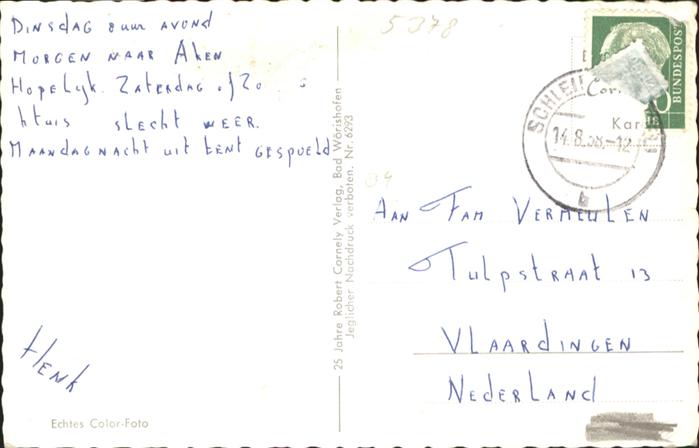 Dinsdag 8 uur avond
Morgen naar Aken
Hopelijk Zaterdag of Zo
thuis slecht weer.
Maandagnacht uit tent gespoeld
Henk
Echtes Color-Foto
25 Jahre Robert Cornely Verlag, Bad Wörishofen
Jeglicher Nachdruck verboten. Nr. 6293
5378
BUNDESPOST
Cor
Kar
SCHLEI
14.8.58.-12
b
Aan Fam Vermeulen
Tulpstraat 13
Vlaardingen
Nederland